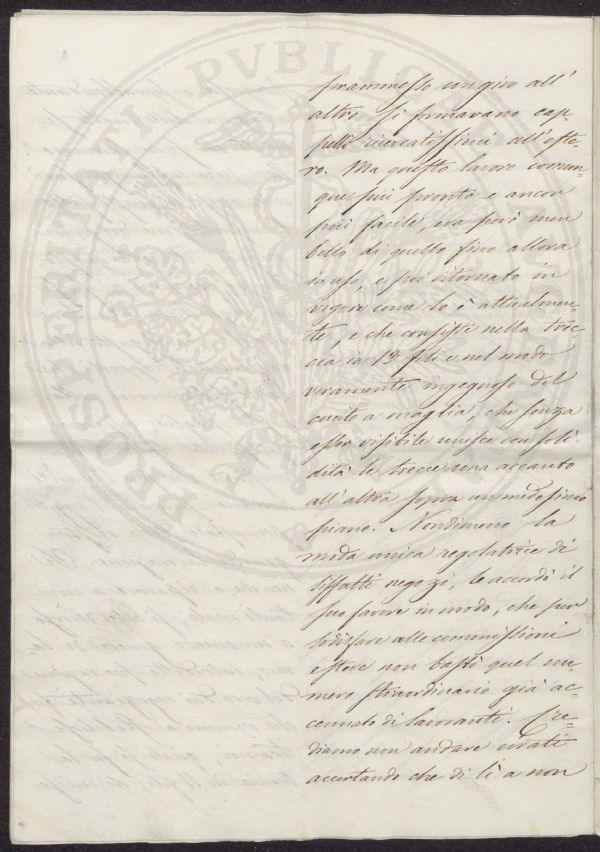 PROSPERITATI PVBLICAE
frammesso un giro all'
altro si formavano cap=
pelli ricercatissimi all'este=
ro. Ma questo lavoro comun=
que più pronto e ancor
più facile, era però men
bello di quello fino allora
in uso, e poi ritornato in
vigore come lo è attualmen=
te, e che consiste nella trec=
cia in 13 fili e nel modo
veramente ingegnoso del
cucito a maglia, che senza
esser visibile unisce con soli=
dità le trecce una accanto
all'altra sopra un medesimo
piano. Nondimeno la
moda unica regolatrice di
siffatti negozi, le accordò il
suo favore in modo, che per
sodisfare alle commissioni
estere non bastò quel nu=
mero straordinario già ac=
cennato di lavoranti. Cre=
diamo non andare errati
accertando che di lì a non